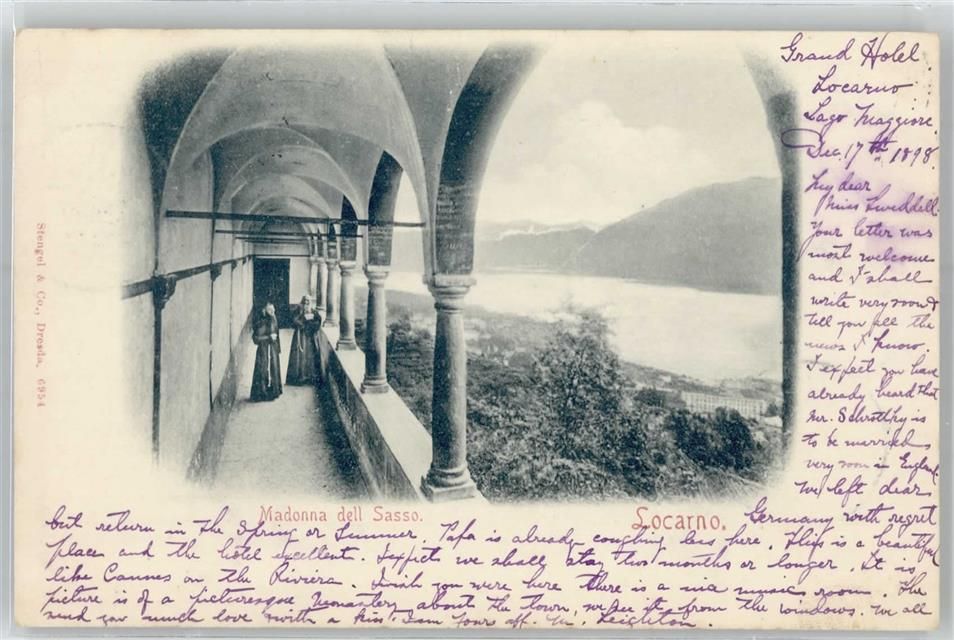 Grand Hotel
Locarno
Lago Maggiore
Dec. 17th 1898
My dear
Miss Liveddell.
Your letter was
most welcome
and I shall
write very soon &
tell you all the
news I know.
I expect you have
already heard that
Mr. Schrothky is
to be married
very soon in England.
We left dear
Germany with regret
but return in the Spring or Summer. Papa is already coughing less here. This is a beautiful
place and the hotel excellent. I expect we shall stay two months or longer. It is
like Cannes on the Riviera. I wish you were here there is a nice music room. The
picture is of a picturesque Monastery about the town, we see it from the windows. We all
send you much love with a kiss. I am Yours aff. M. Leighton.
Madonna dell Sasso.
Locarno.
Stengel & Co., Dresda. 6954